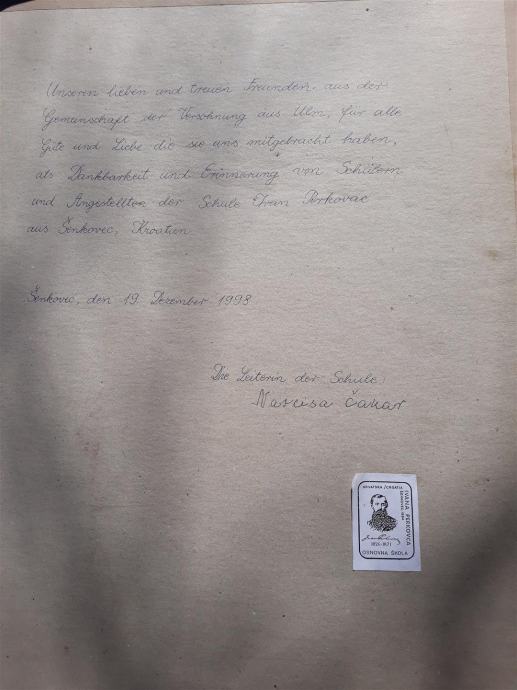 Unseren lieben und treuen Freunden aus der
Gemeinschaft der Versöhnung aus Ulm, für alle
Güte und Liebe die sie uns mitgebracht haben,
als Dankbarkeit und Erinnerung von Schülern
und Angestellten der Schule Ivan Perkovac
aus Šenkovec, Kroatien
Šenkovec, den 19. Dezember 1998
Die Leiterin der Schule:
Narcisa Čakar
HRVATSKA / CROATIA
IVANA PERKOVCA
1826-1871
OSNOVNA ŠKOLA